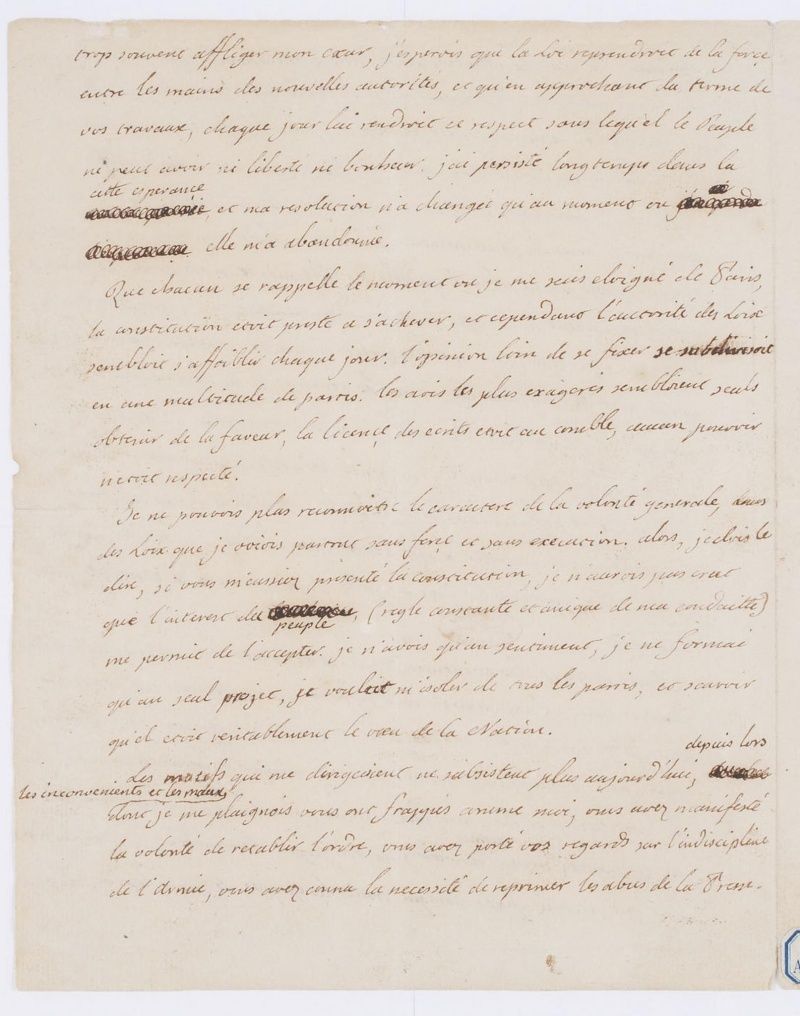 trop souvent affliger mon cœur, j'esperois que la Loi reprendroit de la force
entre les mains des nouvelles autorités, et qu'en approchant du terme de
vos travaux, chaque jour lui rendroit ce respect sous lequel le Peuple
ne peut avoir ni liberté ni bonheur. j'ai persisté longtemps dans la
cette esperance
et ma resolution n'a changée qu'au moment ou
elle m'a abandonnée.
Que chacun se rappelle le moment ou je me suis eloigné de Paris,
la constitution etoit preste a s'achever, et cependant l'autorité des Loix
sembloit s'affoiblir chaque jour. l'opinion loin de se fixer se subdivisoit
en une multitude de partis. les avis les plus exagerés sembloient seuls
obtenir de la faveur, la licence des ecrits etoit au comble, aucun pouvoir
n'etoit respecté.
Je ne pouvois plus reconnoitre le caractere de la volonté generale, dans
des Loix que je voiois partout sans force et sans execution. alors, je dois le
dire, si vous m'eussiez présenté la constitution, je n'aurois pas cru
que l'interest du (regle constante et unique de ma conduitte)
peuple
me permit de l'accepter. je n'avois qu'un sentiment, je ne formai
qu'un seul projet, je voulus m'isoler de tous les partis, et scavoir
quel etoit veritablement le vœu de la Nation.
depuis lors
Les motifs qui me dirigeoient ne subsistent plus aujourd'hui,
les inconvenients et les maux
dont je me plaignois vous ont frappés comme moi, vous avez manifesté
la volonté de retablir l'ordre, vous avez porté vos regards sur l'indiscipline
de l'Armée, vous avez connu la necessité de reprimer les abus de la Presse.